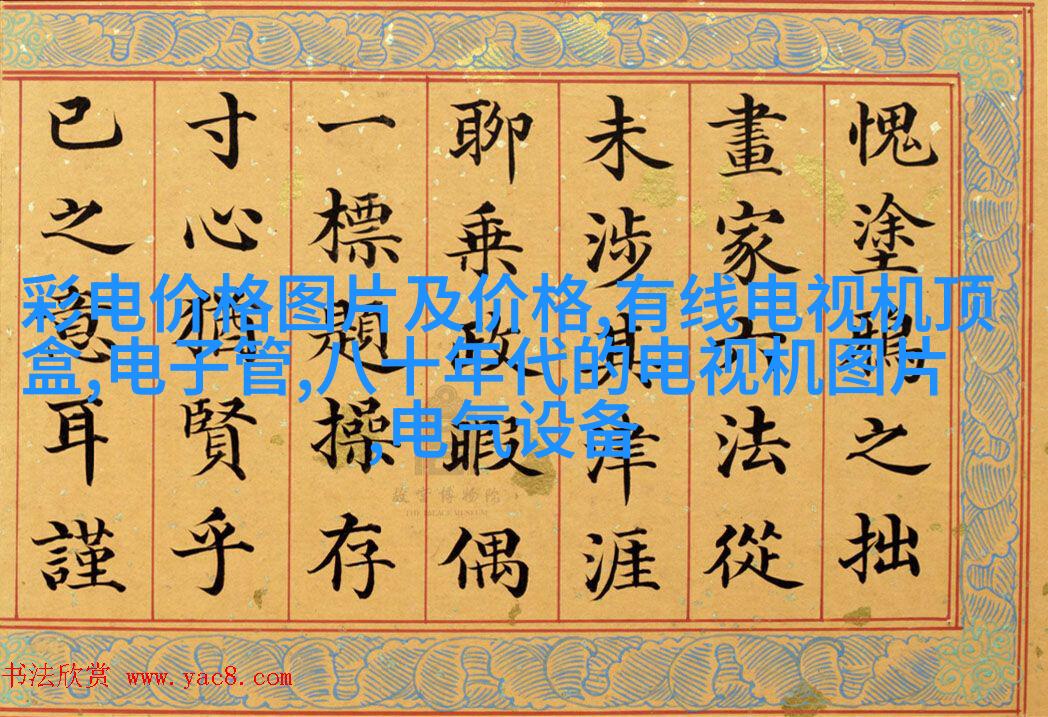 愧塗之拙
畫家六法從
未涉其津涯
聊乘政暇偶
一標題操存
寸心猶賢乎
已之意耳謹
彩电价格图片及价格,有线电视机顶
盒,电子管,八十年代的电视机图片
,电气设备
故宫博物院
THE PALACE MUSEUM
书法欣赏 www.yac8.com